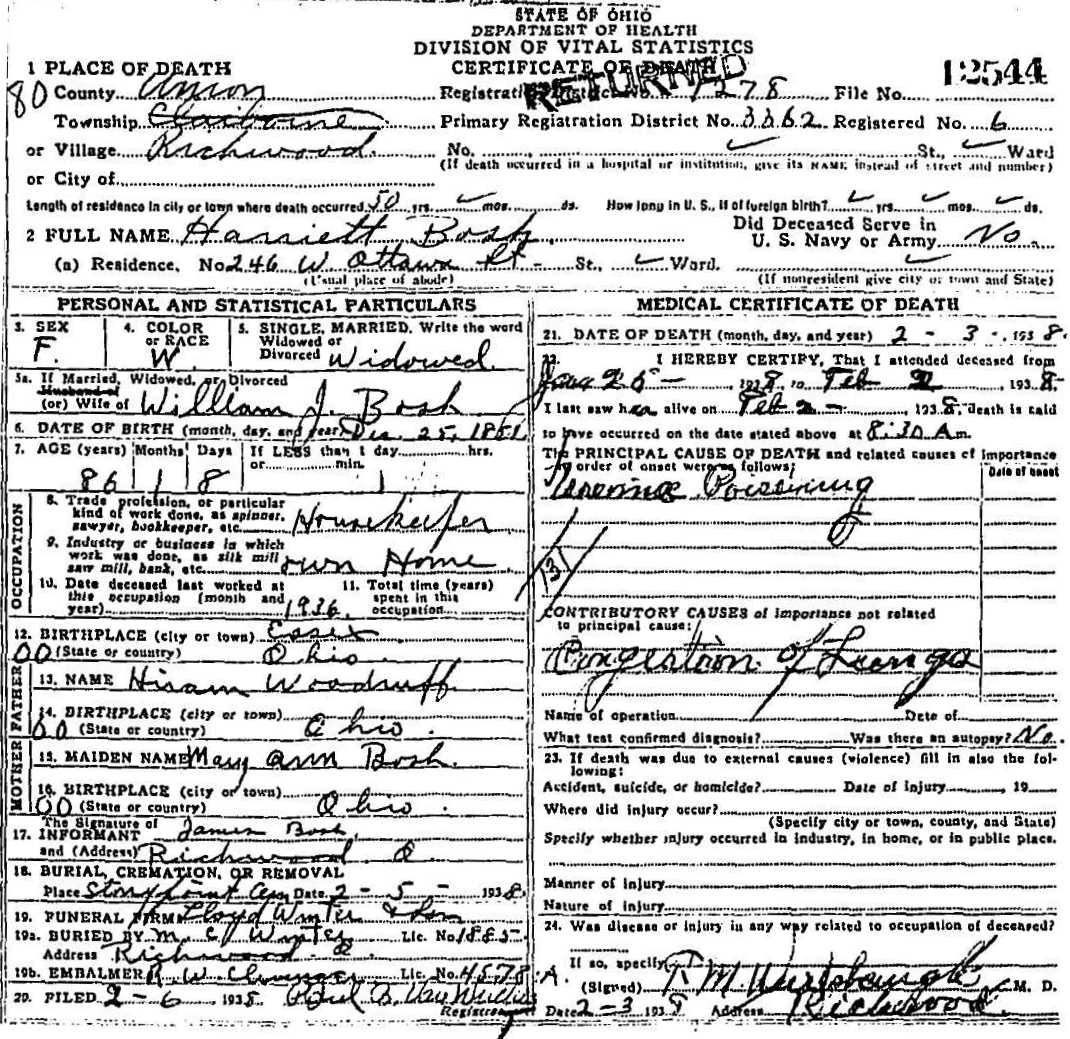 STATE OF OHIO
DEPARTMENT OF HEALTH
DIVISION OF VITAL STATISTICS
CERTIFICATE OF DEATH
RETURNED
12544
1 PLACE OF DEATH
80 County Union Registration District No. 1278 File No.
Township Claiborne Primary Registration District No. 3362 Registered No. 6
or Village Richwood No. St., Ward
(If death occurred in a hospital or institution, give its NAME instead of street and number)
or City of
Length of residence in city or town where death occurred 50 yrs. mos. ds. How long in U. S., if of foreign birth? yrs. mos. ds.
2 FULL NAME Harriett Bosh Did Deceased Serve in U. S. Navy or Army No.
(a) Residence. No. 246 W. Ottawa St., Ward.
(Usual place of abode) (If nonresident give city or town and State)
PERSONAL AND STATISTICAL PARTICULARS
3. SEX F. 4. COLOR or RACE W. 5. SINGLE, MARRIED, Write the word Widowed or Divorced Widowed
5a. If Married, Widowed, or Divorced
Husband of
(or) Wife of William J. Bosh
6. DATE OF BIRTH (month, day, and year) Dec. 25, 1851
7. AGE (years) Months Days If LESS than 1 day hrs. or min.
86 1 8
OCCUPATION
8. Trade profession, or particular kind of work done, as spinner, sawyer, bookkeeper, etc. Housekeeper
9. Industry or business in which work was done, as silk mill saw mill, bank, etc. own Home
10. Date deceased last worked at this occupation (month and year) 1936 11. Total time (years) spent in this occupation
12. BIRTHPLACE (city or town) Essex
00 (State or country) Ohio
FATHER
13. NAME Hiram Woodruff
14. BIRTHPLACE (city or town)
00 (State or country) Ohio
MOTHER
15. MAIDEN NAME Mary Ann Bosh
16. BIRTHPLACE (city or town)
00 (State or country) Ohio
17. The Signature of INFORMANT James Bosh
and (Address) Richwood O.
18. BURIAL, CREMATION, OR REMOVAL
Place Stony point Cem Date 2 - 5 - 1938
19. FUNERAL FIRM Lloyd Winter & Son
19a. BURIED BY M. C. Winter Lic. No. 1885
Address Richwood O.
19b. EMBALMER R. W. Lic. No. 4578 A.
20. FILED 2 - 6 1938
Registrar
MEDICAL CERTIFICATE OF DEATH
21. DATE OF DEATH (month, day, and year) 2 - 3 - 1938
22. I HEREBY CERTIFY, That I attended deceased from
Jan 25 - 1938 to Feb 2, 1938.
I last saw her alive on Feb 2 -, 1938, death is said
to have occurred on the date stated above at 8:30 A m.
The PRINCIPAL CAUSE OF DEATH and related causes of importance
in order of onset were as follows: Date of onset
Uremia Poisoning
131
CONTRIBUTORY CAUSES of importance not related
to principal cause:
Congestion of Lungs
Name of operation Date of
What test confirmed diagnosis? Was there an autopsy? No.
23. If death was due to external causes (violence) fill in also the following:
Accident, suicide, or homicide? Date of injury 19
Where did injury occur?
(Specify city or town, county, and State)
Specify whether injury occurred in industry, in home, or in public place.
Manner of injury
Nature of injury
24. Was disease or injury in any way related to occupation of deceased?
If so, specify
(Signed) M. D.
Date 2-3 1938 Address Richwood